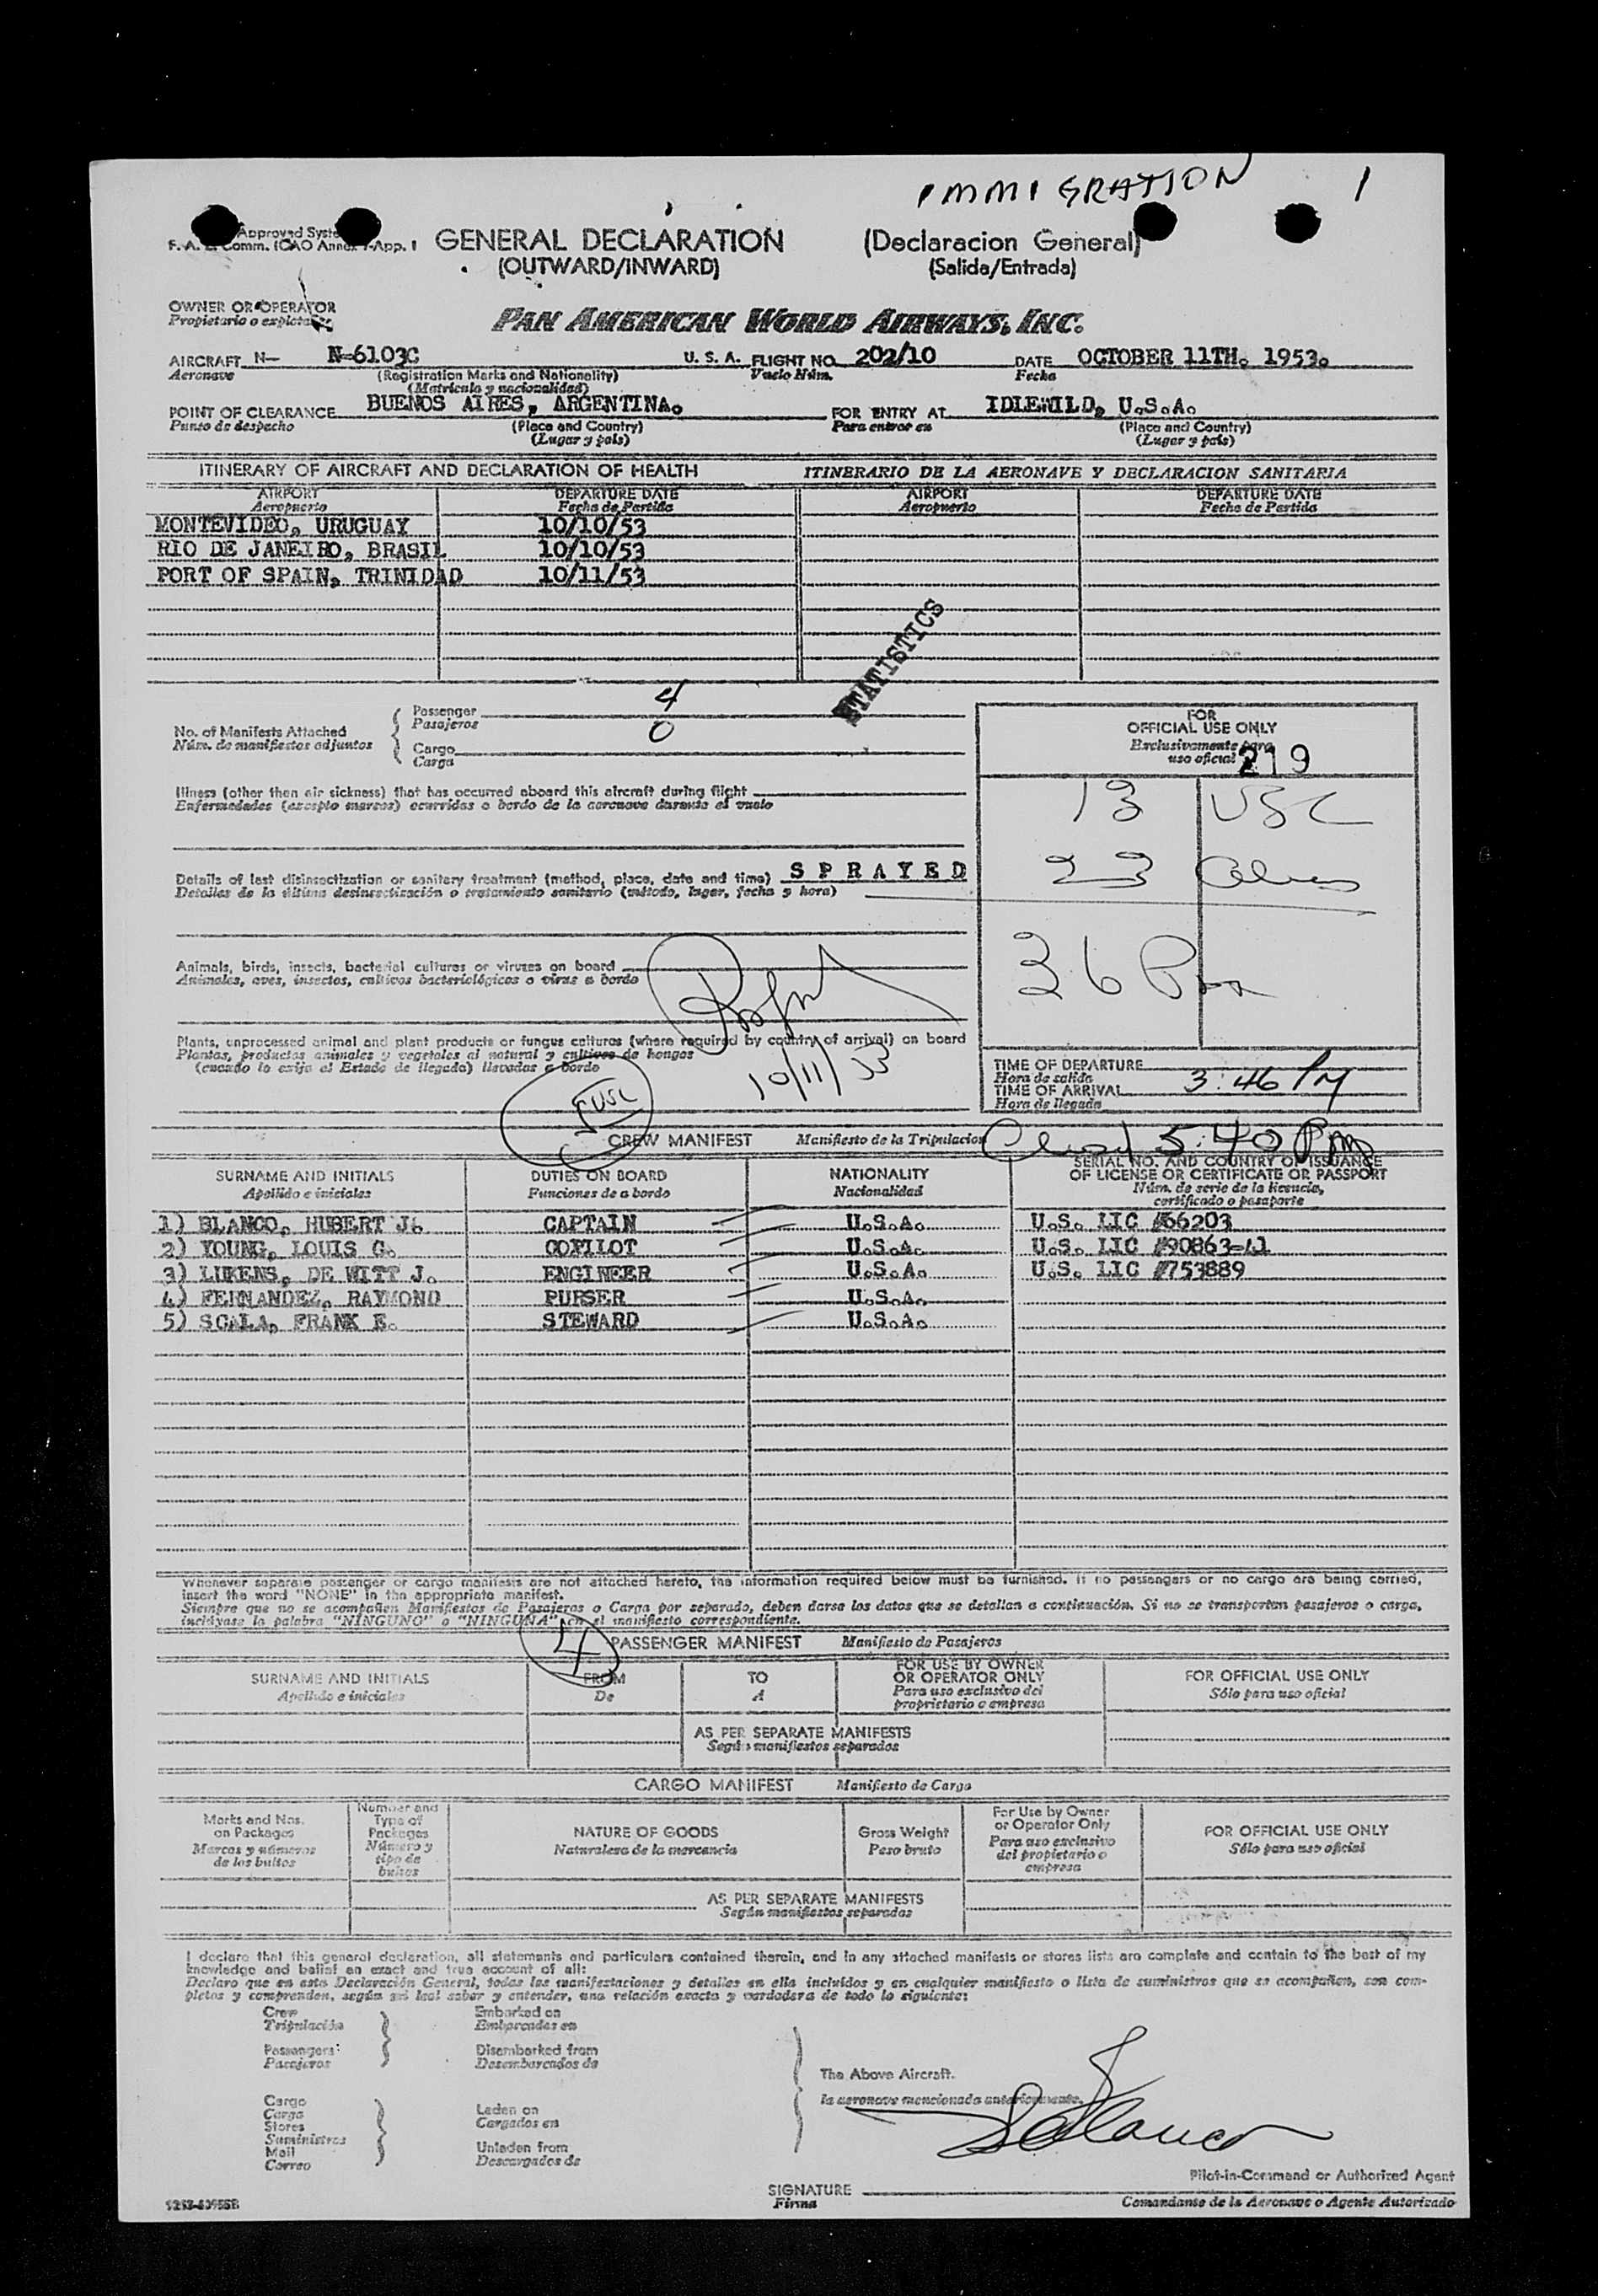 IMMIGRATION 1
Approved
F. A. Comm. ICAO Annex App. 1
GENERAL DECLARATION (Declaracion General)
(OUTWARD/INWARD) (Salida/Entrada)
OWNER OR OPERATOR
Propietario o
PAN AMERICAN WORLD AIRWAYS, INC.
AIRCRAFT N— N-6103C U. S. A. FLIGHT NO. 202/10 DATE OCTOBER 11TH. 1953.
Aeronave (Registration Marks and Nationality) Vuelo Núm. Fecha
(Matricula y nacionalidad)
POINT OF CLEARANCE BUENOS AIRES, ARGENTINA. FOR ENTRY AT IDLEWILD, U.S.A.
Punto de despacho (Place and Country) Para entrar en (Place and Country)
(Lugar y país) (Lugar y país)
ITINERARY OF AIRCRAFT AND DECLARATION OF HEALTH ITINERARIO DE LA AERONAVE Y DECLARACION SANITARIA
AIRPORT DEPARTURE DATE AIRPORT DEPARTURE DATE
Aeropuerto Fecha de Partida Aeropuerto Fecha de Partida
MONTEVIDEO, URUGUAY 10/10/53
RIO DE JANEIRO, BRASIL 10/10/53
PORT OF SPAIN, TRINIDAD 10/11/53
STATISTICS
No. of Manifests Attached Passenger 4
Núm. de manifiestos adjuntos Pasajeros
Cargo 0
Carga
FOR
OFFICIAL USE ONLY
Exclusivamente para
uso oficial 219
13 USC
23
36
Illness (other than air sickness) that has occurred aboard this aircraft during flight
Enfermedades (excepto mareos) ocurridas a bordo de la aeronave durante el vuelo
Details of last disinsectization or sanitary treatment (method, place, date and time) SPRAYED
Detalles de la última desinsectización o tratamiento sanitario (método, lugar, fecha y hora)
Animals, birds, insects, bacterial cultures or viruses on board
Animales, aves, insectos, cultivos bacteriológicos o virus a bordo
Plants, unprocessed animal and plant products or fungus cultures (where required by country of arrival) on board
Plantas, productos animales y vegetales al natural y cultivos de hongos
(cuando lo exija el Estado de llegada) llevados a bordo
10/11/53
TIME OF DEPARTURE
Hora de salida
TIME OF ARRIVAL 3:46 PM
Hora de llegada
5 USC
CREW MANIFEST Manifiesto de la Tripulacion 5:40 Pm
SURNAME AND INITIALS DUTIES ON BOARD NATIONALITY SERIAL NO. AND COUNTRY OF ISSUANCE
OF LICENSE OR CERTIFICATE OR PASSPORT
Apellido e iniciales Funciones de a bordo Nacionalidad Núm. de serie de la licencia,
certificado o pasaporte
1) BLANCO, HUBERT J. CAPTAIN U.S.A. U.S. LIC #66203
2) YOUNG, LOUIS G. COPILOT U.S.A. U.S. LIC #90863-41
3) LUKENS, DE WITT J. ENGINEER U.S.A. U.S. LIC #753889
4) FERNANDEZ, RAYMOND PURSER U.S.A.
5) SCALA, FRANK E. STEWARD U.S.A.
Whenever separate passenger or cargo manifests are not attached hereto, the information required below must be furnished. If no passengers or no cargo are being carried,
insert the word "NONE" in the appropriate manifest.
Siempre que no se acompañen Manifiestos de Pasajeros o Carga por separado, deben darse los datos que se detallan a continuación. Si no se transportan pasajeros o carga,
inclúyase la palabra "NINGUNO" o "NINGUNA" en el manifiesto correspondiente.
4 PASSENGER MANIFEST Manifiesto de Pasajeros
SURNAME AND INITIALS FROM TO FOR USE BY OWNER
OR OPERATOR ONLY FOR OFFICIAL USE ONLY
Apellido e iniciales De A Para uso exclusivo del
proprietario o empresa Sólo para uso oficial
AS PER SEPARATE MANIFESTS
Según manifiestos separados
CARGO MANIFEST Manifiesto de Carga
Marks and Nos.
on Packages
Marcas y números
de los bultos
Number and
Type of
Packages
Número y
tipo de
bultos
NATURE OF GOODS
Naturaleza de la mercancia
Gross Weight
Peso bruto
For Use by Owner
or Operator Only
Para uso exclusivo
del propietario o
empresa
FOR OFFICIAL USE ONLY
Sólo para uso oficial
AS PER SEPARATE MANIFESTS
Según manifiestos separados
I declare that this general declaration, all statements and particulars contained therein, and in any attached manifests or stores lists are complete and contain to the best of my
knowledge and belief an exact and true account of all:
Declaro que en esta Declaración General, todas las manifestaciones y detalles en ella incluidos y en cualquier manifiesto o lista de suministros que se acompañen, son com-
pletos y comprenden, según mi leal saber y entender, una relación exacta y verdadera de todo lo siguiente:
Crew Embarked on
Tripulación Embarcados en
Passengers: Disembarked from
Pasajeros Desembarcados de
The Above Aircraft.
la aeronave mencionada anteriormente.
Cargo
Carga
Stores
Suministros
Mail
Correo
Laden on
Cargados en
Unladen from
Descargados de
Pilot-in-Command or Authorized Agent
SIGNATURE
Firma Comandante de la Aeronave o Agente Autorizado